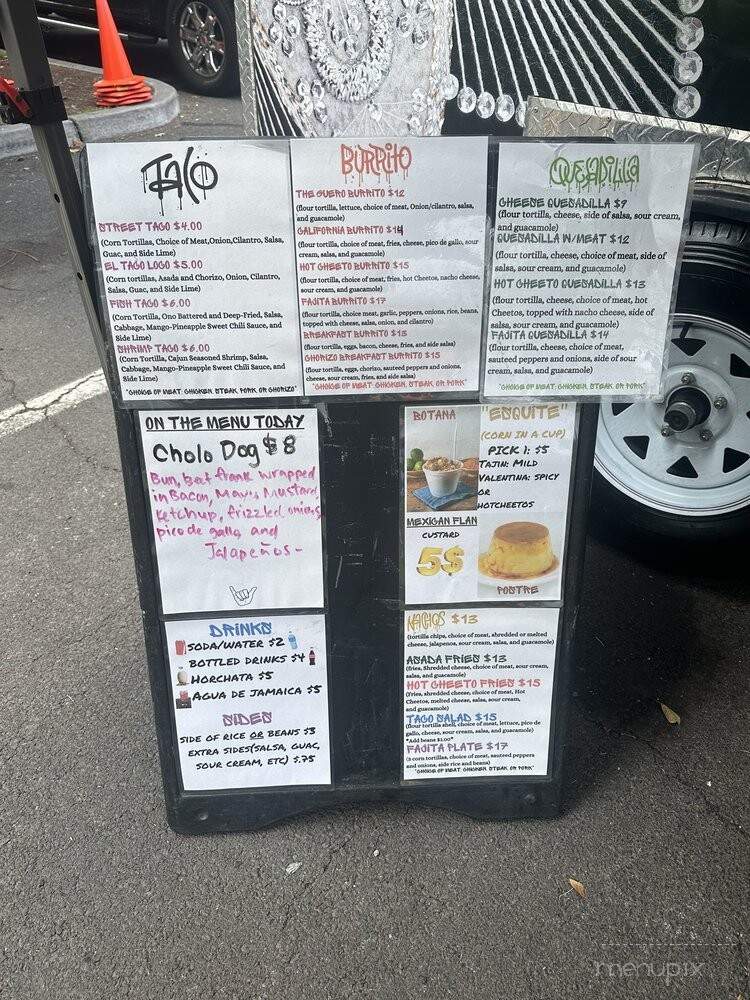 TACO
STREET TACO $4.00
(Corn Tortillas, Choice of Meat,Onion,Cilantro, Salsa,
Guac, and Side Lime)
EL TACO LOCO $5.00
(Corn tortillas, Asada and Chorizo, Onion, Cilantro,
Salsa, Guac, and Side Lime)
FISH TACO $6.00
(Corn Tortilla, Ono Battered and Deep-Fried, Salsa,
Cabbage, Mango-Pineapple Sweet Chili Sauce, and
Side Lime)
SHRIMP TACO $6.00
(Corn Tortilla, Cajun Seasoned Shrimp, Salsa,
Cabbage, Mango-Pineapple Sweet Chili Sauce, and
Side Lime)
"CHOICE OF MEAT CHICKEN STEAK PORK OR CHORIZO"
BURRITO
THE GUERO BURRITO $12
(flour tortilla, lettuce, choice of meat, Onion/cilantro, salsa,
and guacamole)
CALIFORNIA BURRITO $14
(flour tortilla, choice of meat, fries, cheese, pico de gallo, sour
cream, salsa, and guacamole)
HOT CHEETO BURRITO $15
(flour tortilla, choice of meat, fries, hot Cheetos, nacho cheese,
sour cream, salsa, and guacamole)
FAJITA BURRITO $17
(flour tortilla, choice meat, garlic, peppers, onions, rice, beans,
topped with cheese, salsa, onion, and cilantro)
BREAKFAST BURRITO $13
(flour tortilla, eggs, bacon, cheese, fries, and side salsa)
CHORIZO BREAKFAST BURRITO $15
(flour tortilla, eggs, chorizo, sauteed peppers and onions,
cheese, sour cream, fries, and side salsa)
"CHOICE OF MEAT CHICKEN, STEAK, OR PORK"
QUESADILLA
CHEESE QUESADILLA $9
(flour tortilla, cheese, side of salsa, sour cream,
and guacamole)
QUESADILLA W/MEAT $12
(flour tortilla, cheese, choice of meat, side of
salsa, sour cream, and guacamole)
HOT CHEETO QUESADILLA $13
(flour tortilla, cheese, choice of meat, hot
Cheetos, topped with nacho cheese, side of
salsa, sour cream, and guacamole)
FAJITA QUESADILLA $14
(flour tortilla, cheese, choice of meat,
sauteed peppers and onions, side of sour
cream, salsa, and guacamole)
"CHOICE OF MEAT CHICKEN, STEAK OR PORK"
ON THE MENU TODAY
Cholo Dog $8
Bun, beef frank wrapped
in Bacon, Mayo, Mustard,
Ketchup, frizzled onions,
pico de gallo and
Jalapeños -
BOTANA
"ESQUITE"
(CORN IN A CUP)
PICK 1: $5
TAJIN: MILD
VALENTINA: SPICY
OR
HOTCHEETOS
MEXICAN FLAN
CUSTARD
5$
POSTRE
DRINKS
SODA/WATER $2
BOTTLED DRINKS $4
HORCHATA $5
AGUA DE JAMAICA $5
SIDES
SIDE OF RICE OR BEANS $3
EXTRA SIDES(SALSA, GUAC,
SOUR CREAM, ETC) $.75
NACHOS $13
(tortilla chips, choice of meat, shredded or melted
cheese, jalapenos, sour cream, salsa, and guacamole)
ASADA FRIES $13
(fries, Shredded cheese, choice of meat, sour cream,
salsa, and guacamole)
HOT CHEETO FRIES $15
(Fries, shredded cheese, choice of meat, Hot
Cheetos, melted cheese, salsa, sour cream,
and guacamole)
TACO SALAD $15
(flour tortilla shell, choice of meat, lettuce, pico de
gallo, cheese, sour cream, salsa, and guacamole)
*Add beans $1.00*
FAJITA PLATE $17
(3 corn tortillas, choice of meat, sauteed peppers
and onions, side rice and beans)
"CHOICE OF MEAT CHICKEN, STEAK OR PORK"
menupix